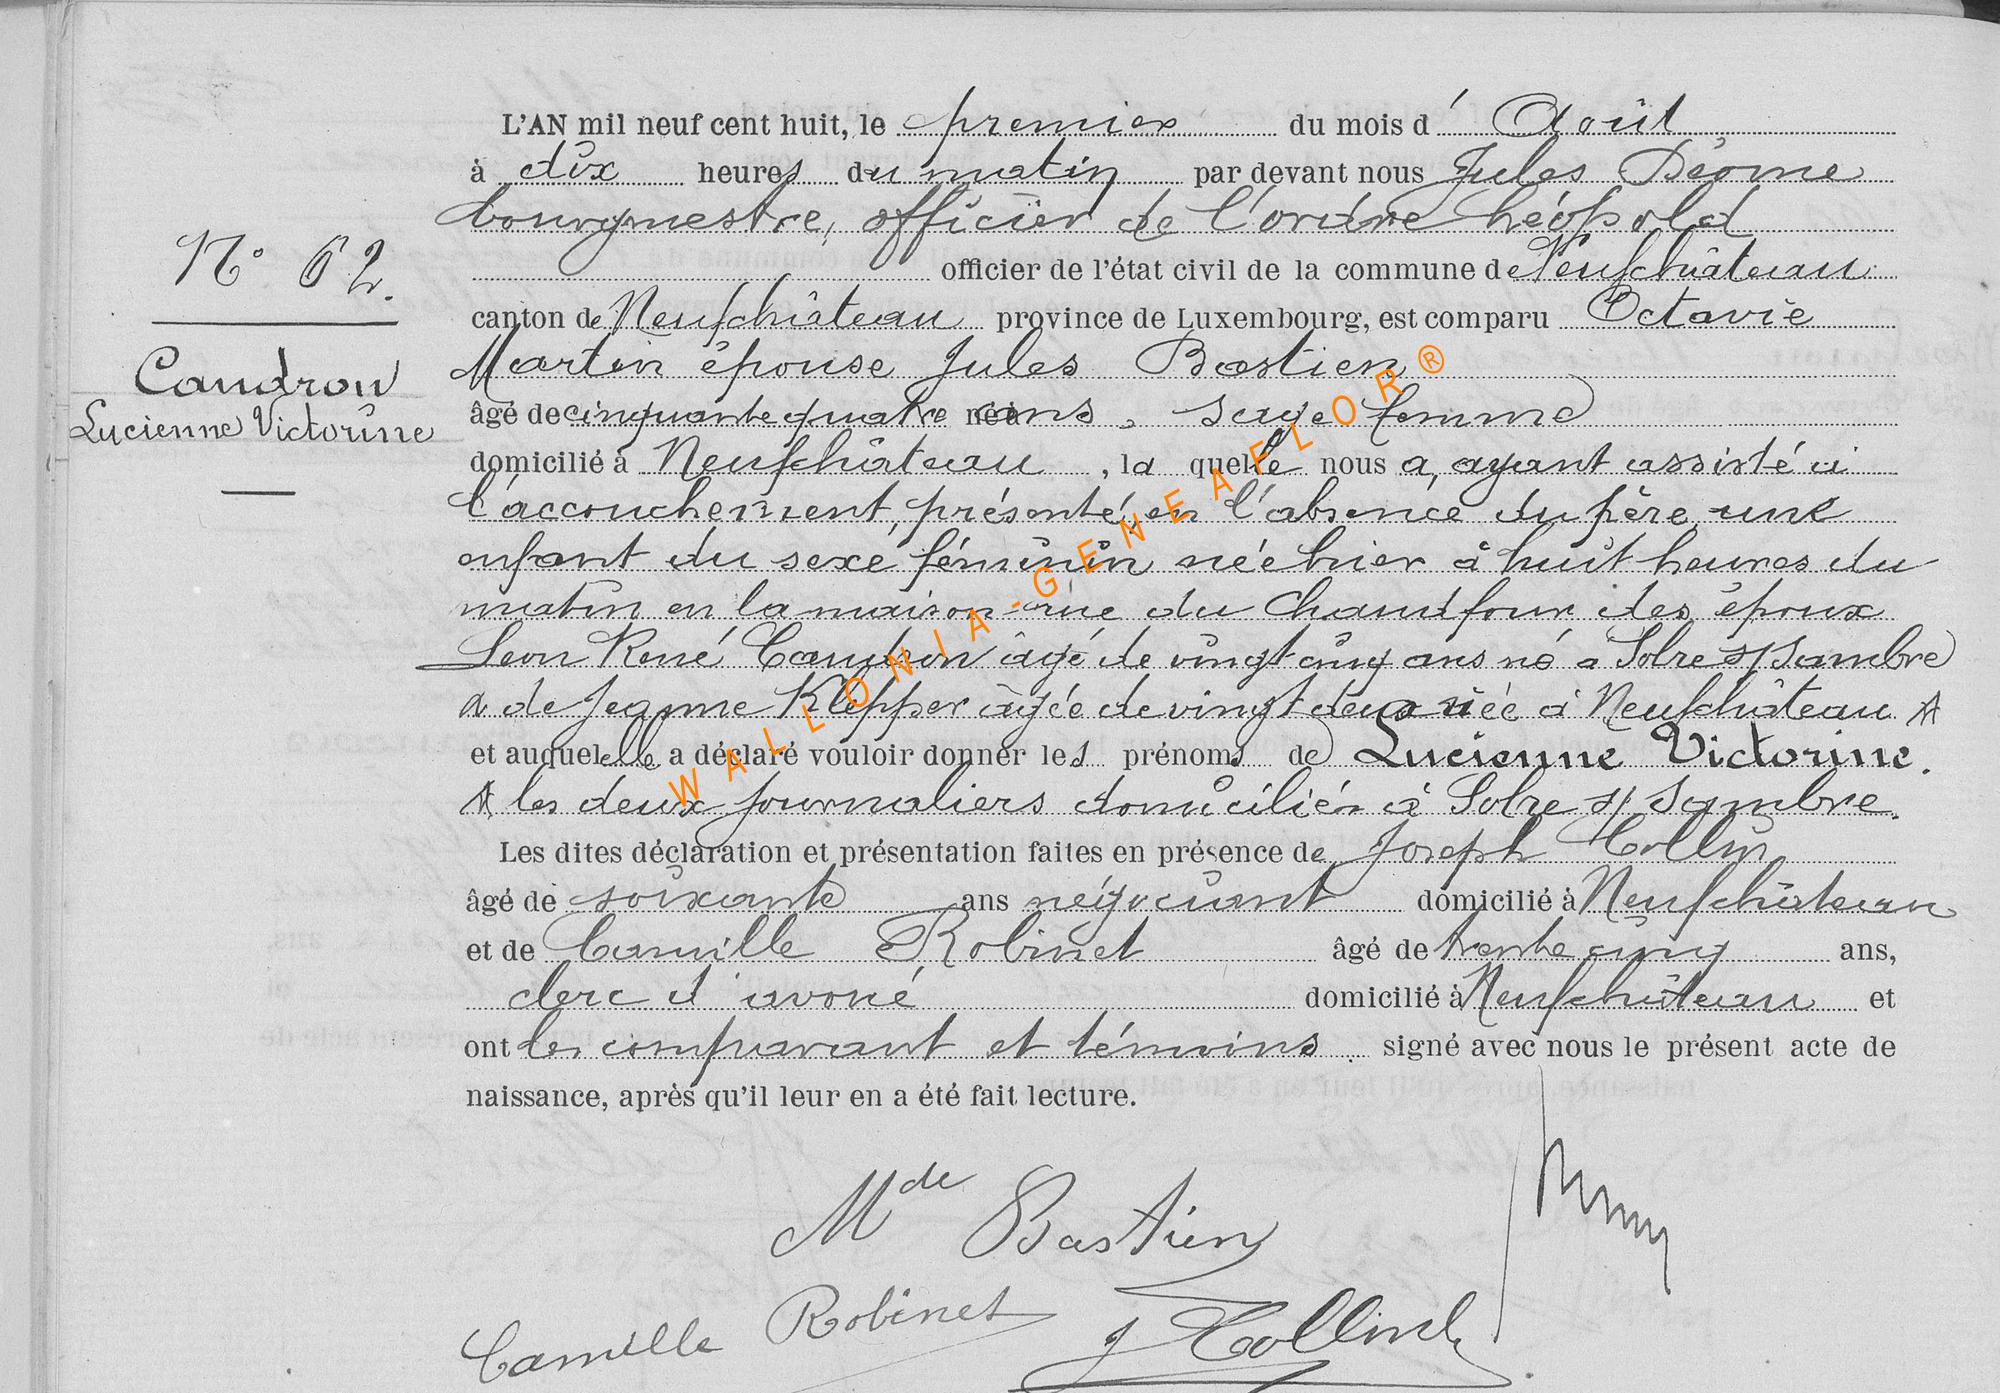 L'AN mil neuf cent huit, le premier du mois d' Août
à dix heures du matin par devant nous Jules Déome
bourgmestre, officier de l'ordre Léopold
N° 62.
officier de l'état civil de la commune de Neufchâteau
canton de Neufchâteau province de Luxembourg, est comparu Octavie
Caudron
Martin épouse Jules Bastien
Lucienne Victorine
âgé de cinquante quatre ans, sage femme
domicilié à Neufchâteau, la quelle nous a, ayant assisté à
l'accouchement, présenté, en l'absence du père, une
enfant du sexe féminin née hier à huit heures du
matin en la maison rue du Chaudfour des époux
Léon René Caudron âgé de vingt cinq ans né à Solre s/Sambre
& de Jeanne Klepper âgée de vingt deux née à Neufchâteau
et auquelelle a déclaré vouloir donner les prénoms de Lucienne Victorine.
les deux journaliers domiciliés à Solre s/ Sambre.
Les dites déclaration et présentation faites en présence de Joseph Collin
âgé de soixante ans négociant domicilié à Neufchâteau
et de Camille Robinet âgé de trente cinq ans,
clerc d'avoué domicilié à Neufchâteau et
ont les comparant et témoins signé avec nous le présent acte de
naissance, après qu'il leur en a été fait lecture.
Mde Bastien
Camille Robinet J Collin
WALLONIA-GENEAFLOR®